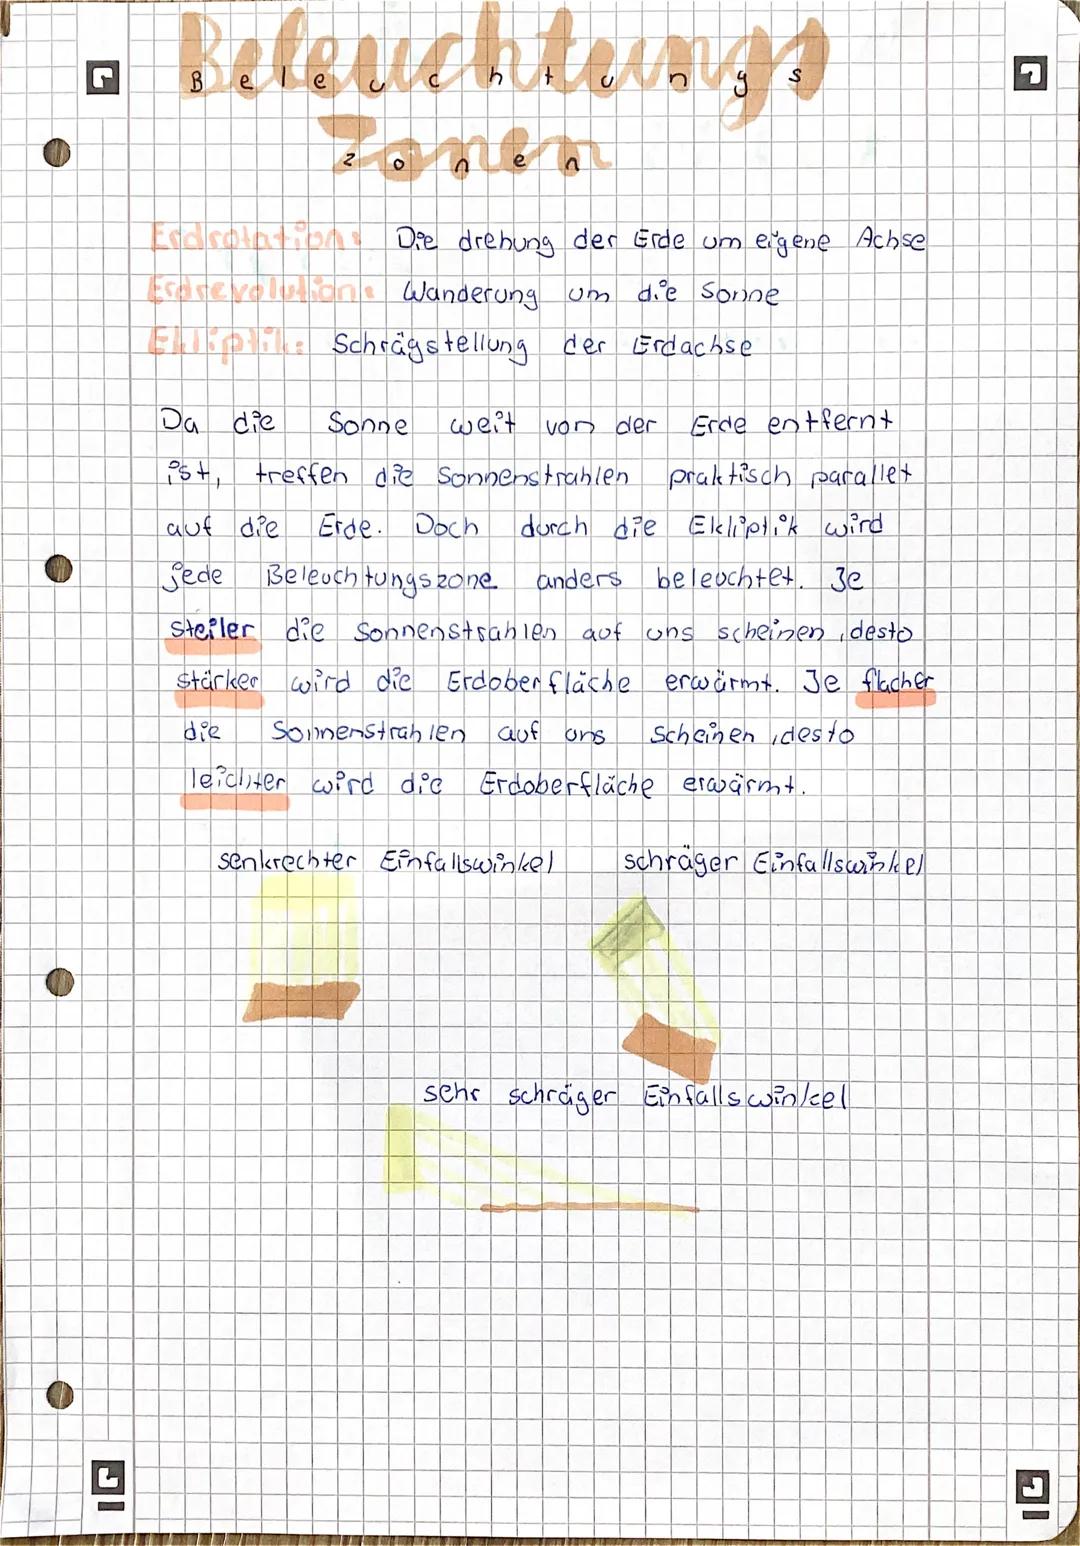 Beleuchtungs
Beleuchtungs
Zonen
zonen
Erdrotation: Die drehung der Erde um eigene Achse
Erdrevolution: Wanderung um die Sonne
Ekliptik: Schrägstellung der Erdachse
Da die Sonne weit von der Erde entfernt
ist, treffen die Sonnenstrahlen praktisch parallel
auf die Erde. Doch durch die Ekliptik wird
jede Beleuchtungszone anders beleuchtet. Je
steiler die Sonnenstrahlen auf uns scheinen, desto
stärker wird die Erdoberfläche erwärmt. Je flacher
die Sonnenstrahlen auf uns scheinen, desto
leichter wird die Erdoberfläche erwärmt.
senkrechter Einfallswinkel schräger Einfallswinkel
sehr schräger Einfallswinkel